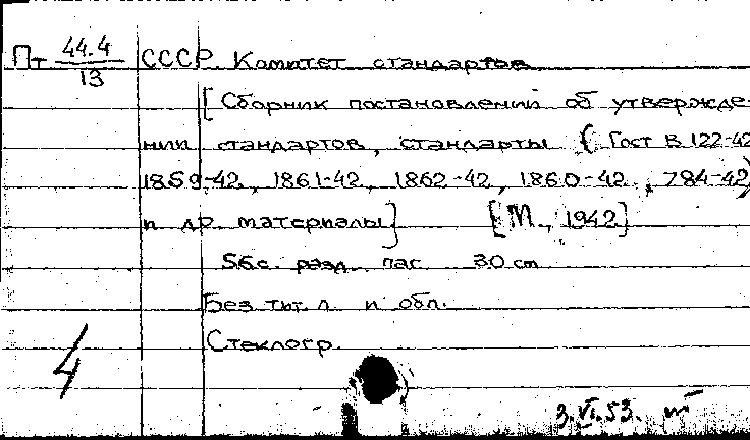 Пт 44.4/13 СССР Комитет стандартов
[Сборник постановлений об утвержде-
нии стандартов, стандарты (Гост В 122-42
1859-42, 1861-42, 1862-42, 1860-42, 784-42)
и др. материалы] [М., 1942]
56 с. разд. паг. 30 cm
Без тит. л. и обл.
Стеклогр.
4
3.VI.53.